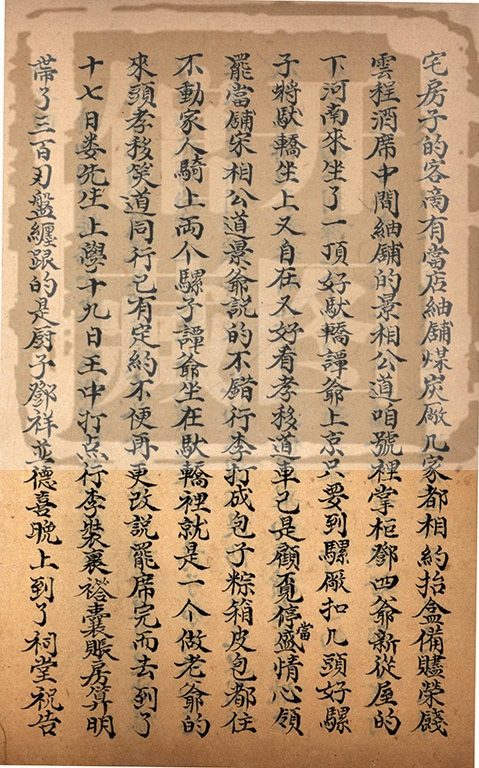 宅房子的客商有當店紬舖煤炭廠几家都相約抬盒備賮榮餞
雲程酒席中間紬舖的景相公道咱號裡掌柜鄧四爺新從屋的
下河南來坐了一頂好馱轎譚爺上京只要到騾廠扣几頭好騾
子將馱轎坐上又自在又好看孝移道車已是顧覓停當盛情心領
罷當舖宋相公道景爺説的不錯行李打成包子粽箱皮包都住
不動家人騎上両个騾子譚爺坐在馱轎裡就是一个做老爺的
來頭孝移笑道同行已有定約不便再更改説罷席完而去到了
十七日娄先生上學十九日王中打点行李裝裹褡囊賬房算明
帶了三百刃盤纏跟的是厨子鄧祥並德喜晚上到了祠堂祝告